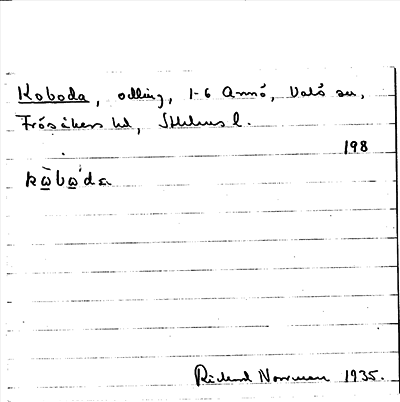 Koboda, odling, 1-6 Arnö, Vató sn,
Frösåkers hd, Sthlms l.
198
kò̱bo̱'da
Rickard Norrman 1935.